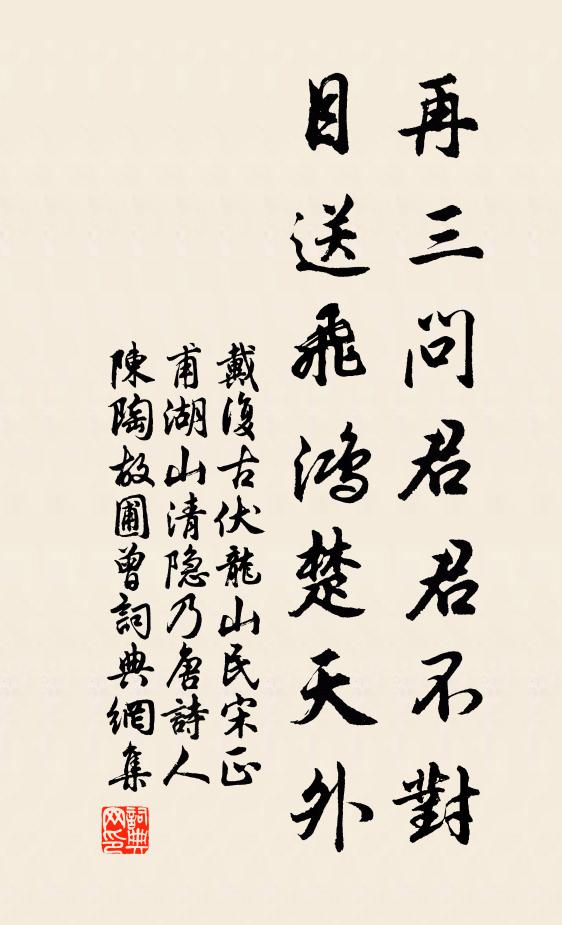 再三問君君不對
目送飛鴻楚天外
戴復古伏龍山民宋正
甫湖山清隐乃唐詩人
陳陶故圃曾詞典網集
詞典
网印